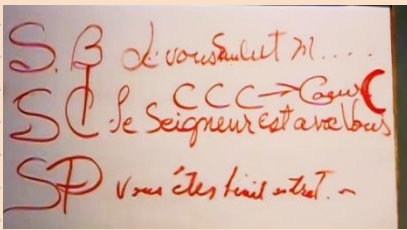 S.B Je vous salut M....
C C C → Coeur C
SC Le Seigneur est avec Vous
SP Vous êtes